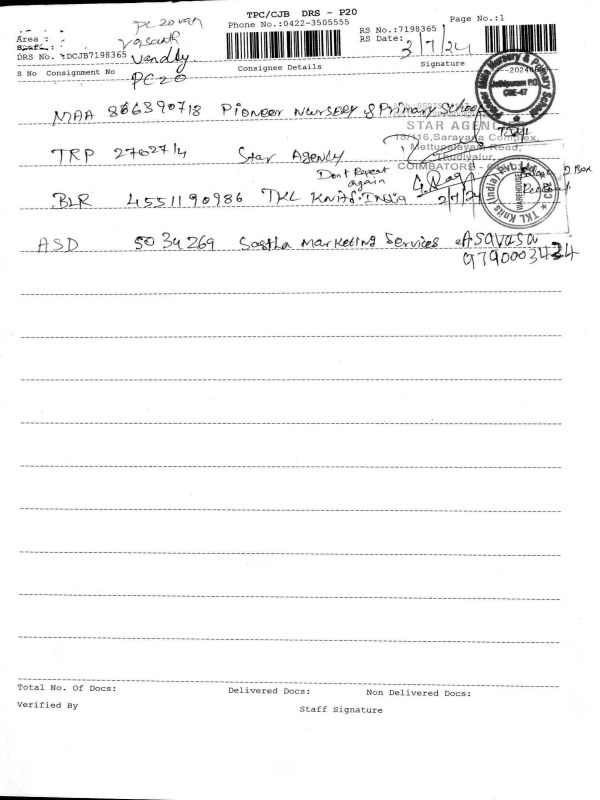 TPC/CJB DRS - P20
Phone No.:0422-3505555
Page No.:1
PC20 van
Area :
Vasanth
RS No.:7198365
RS Date: 3/7/24
Staff :
DRS No. :DCJB7198365 Vandly
S No Consignment No
Consignee Details
Signature
PC20
MAA 866390718 Pioneer Nursery & Primary School
Pioneer Mills Nursery & Primary School
CBE-47
TRP 2762714 Star Agency
STAR AGENCY
13/116, Saravana Complex,
Mettupalayam Road,
Thudiyalur,
COIMBATORE
Dont Repeat
again
BLR 4551190986 TKL Knits India
2/7/24
2 Box
TKL Knits (India) Pvt. Ltd.
WAREHOUSE
ASD 5034269 Sastha Marketing Services
9790003434
Total No. Of Docs:
Delivered Docs:
Non Delivered Docs:
Verified By
Staff Signature